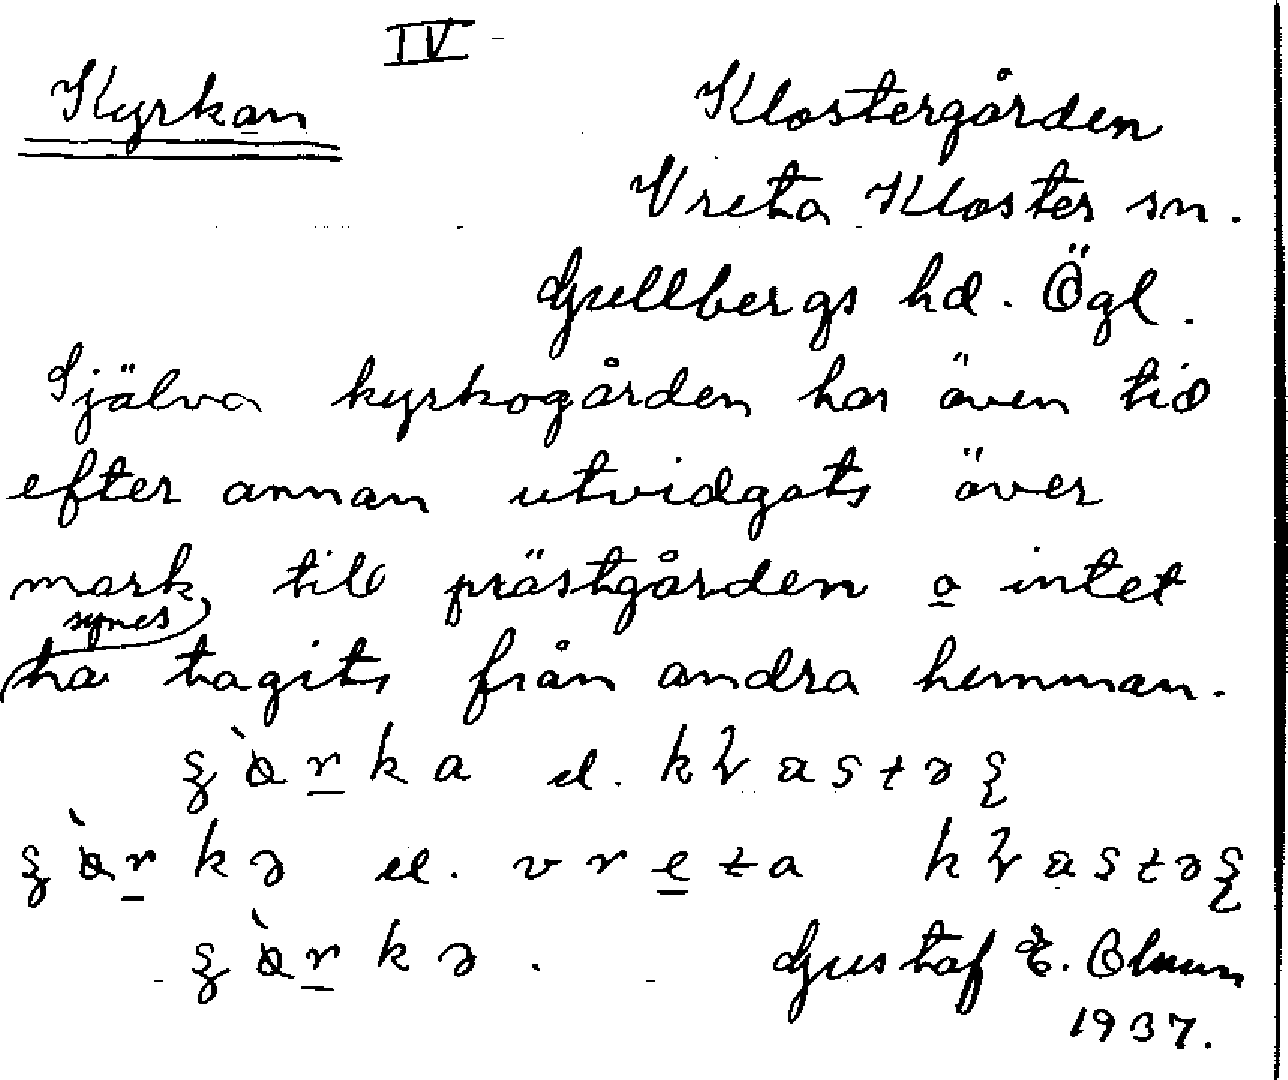 IV
Kyrkan
Klostergården
Vreta Kloster sn.
Gullbergs hd. Ögl.
Själva kyrkogården har även tid
efter annan utvidgats över
mark till prästgården o intet
synes
ha tagits från andra hemman.
el.
el.
Gustaf E.
1937.